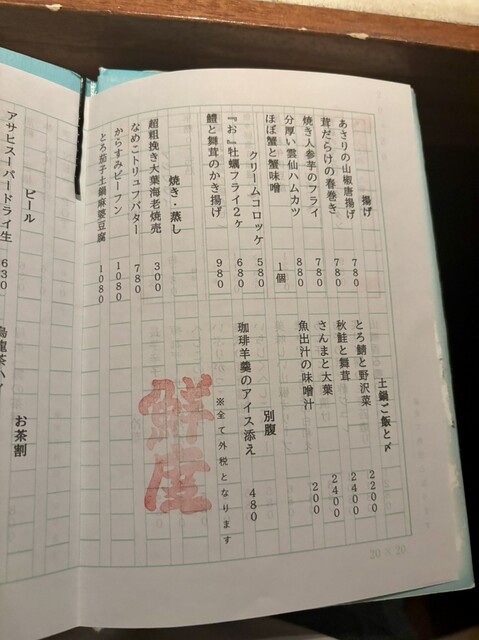 揚げ
あさりの山椒唐揚げ 780
茸だらけの春巻き 780
焼き人参芋のフライ 780
分厚い雲仙ハムカツ 880
ほぼ蟹と蟹味噌 1個
クリームコロッケ 580
『お』牡蠣フライ2ヶ 680
鱧と舞茸のかき揚げ 980
焼き・蒸し
超粗挽き大葉海老焼売 300
なめこトリュフバター 780
からすみビーフン 1080
とろ茄子土鍋麻婆豆腐 1080
土鍋ご飯と〆
とろ鯖と野沢菜 2200
秋鮭と舞茸 2400
さんまと大葉 2400
魚出汁の味噌汁 200
別腹
珈琲羊羹のアイス添え 480
※全て外税となります
20×20
ビール
アサヒスーパードライ生 630
お茶割
烏龍茶ハイ